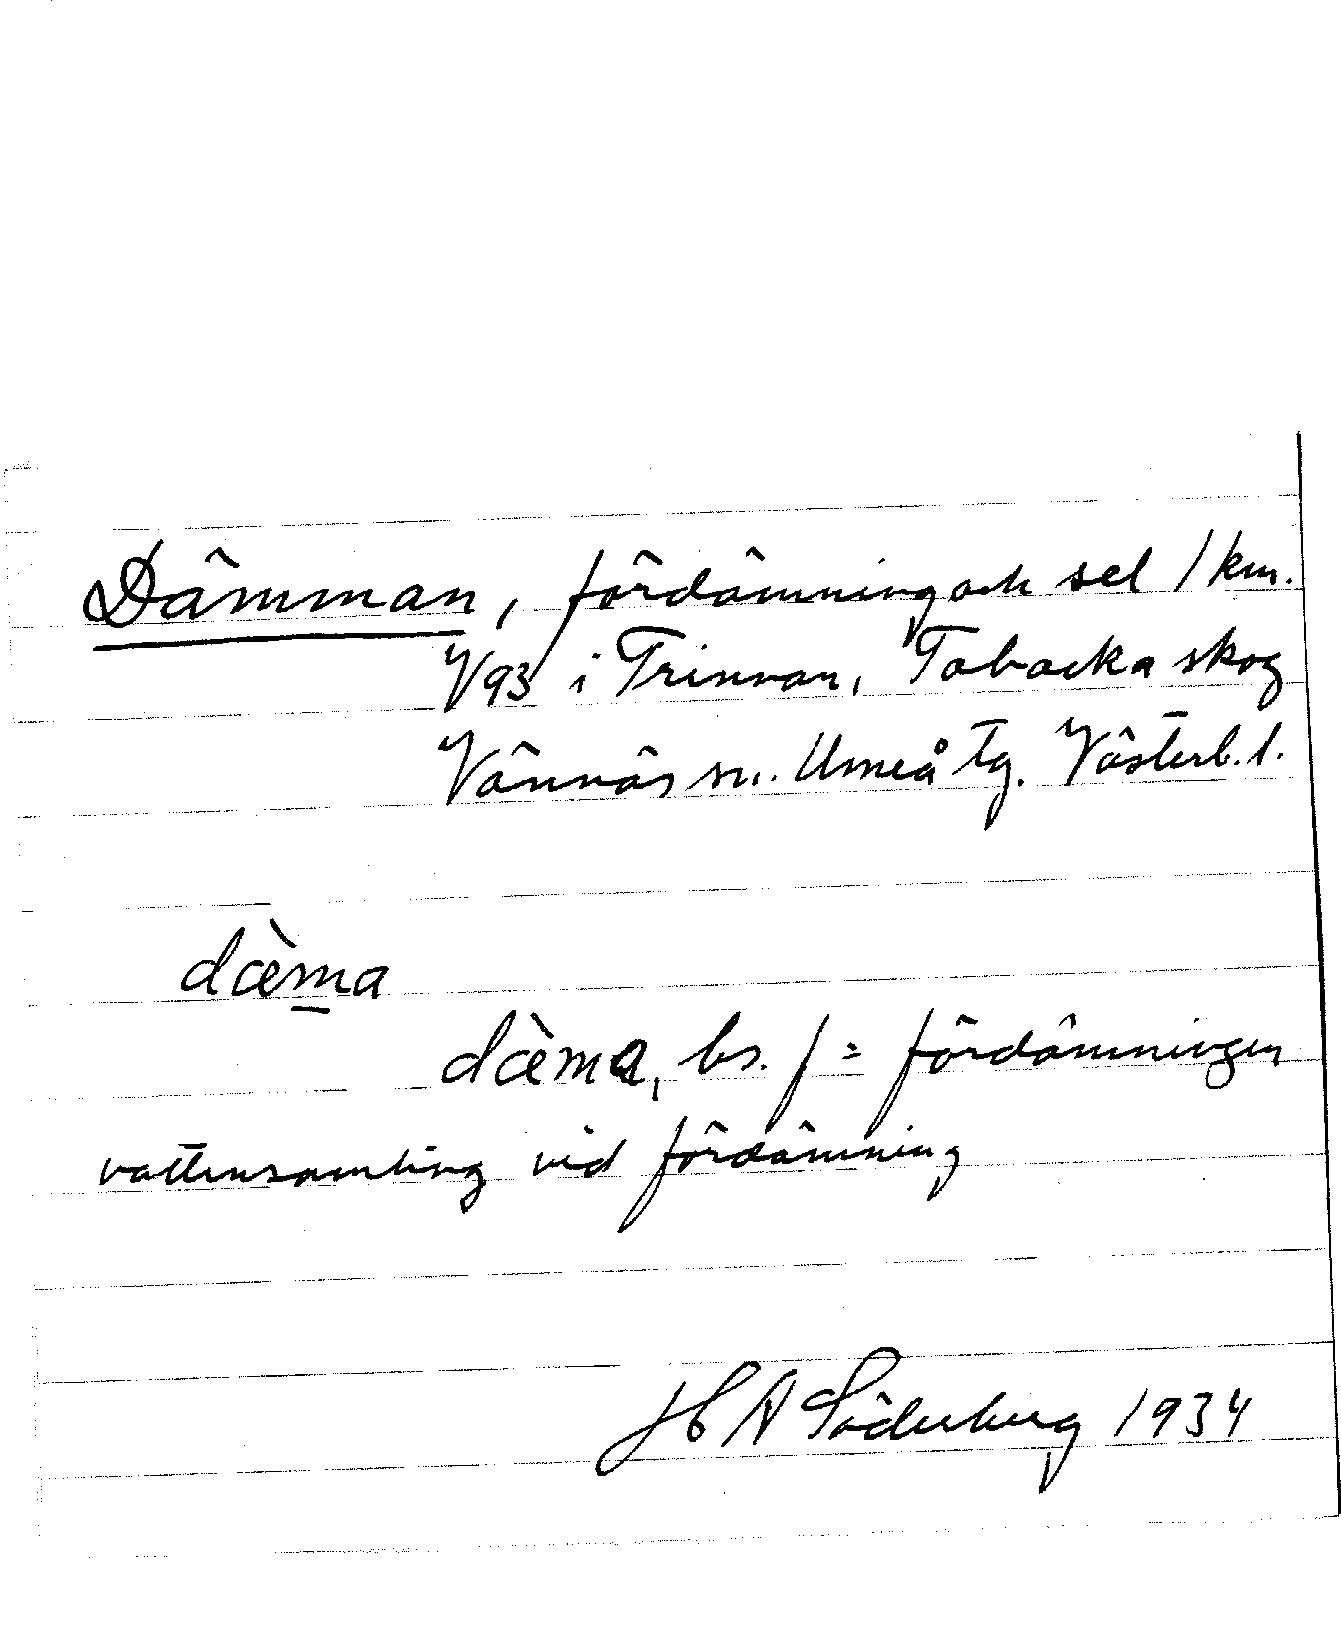 Dämman, fördämning och sel 1 km.
V93 i Trinnan, Tobacka skog
Vännäs sn. Umeå tg. Västerb. l.
dæ̀m̲a
dæ̀ma, bs. f = fördämningen
vattensamling vid fördämning
H A Söderberg 1934